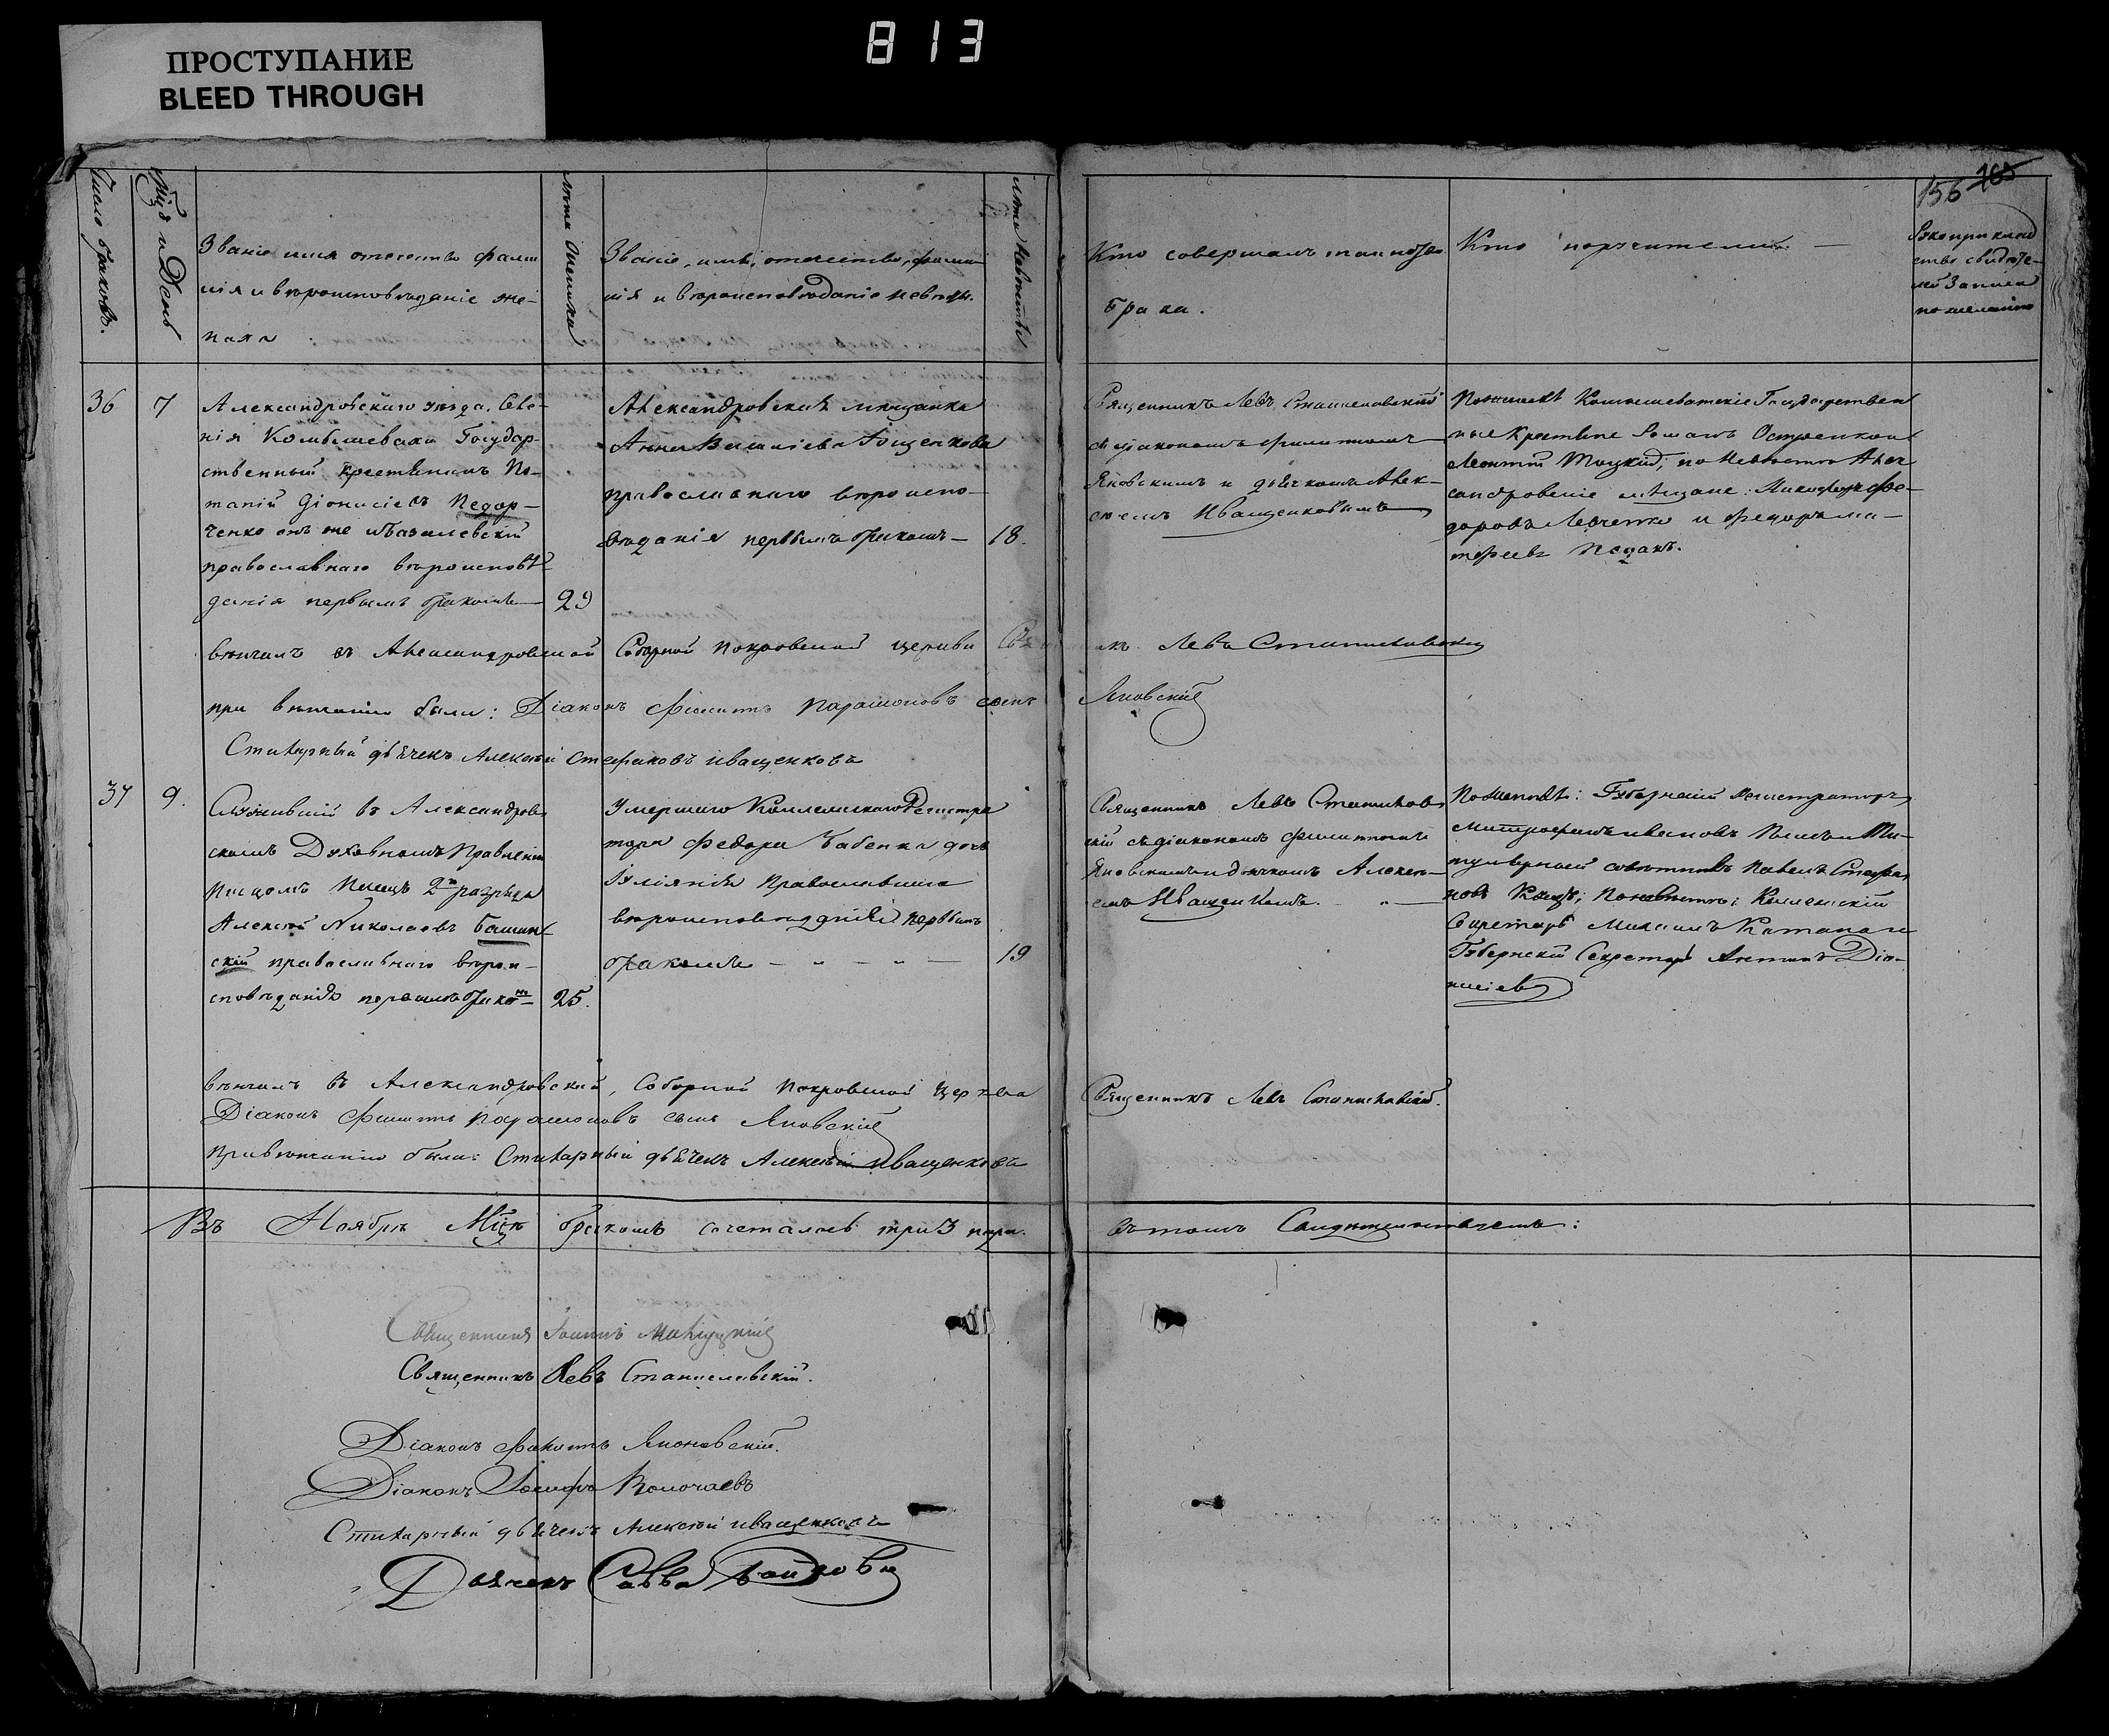 813
ПРОСТУПАНИЕ
BLEED THROUGH
156 185
Число браковъ.
Мц̃ъ и День
Званіе имя отечество фами
лія и вѣроисповѣданіе же-
ниха
Лѣта жениха
Званіе, имя, отечество, фами
лія и вѣроисповѣданіе невѣсты.
Лѣта невѣсты
Кто совершалъ таинство
брака.
Кто поручители
Рукоприклад
ство свидѣте-
лей записи
по желанію
36
7
Александровскаго уѣзда, Селе-
нія Комышевахи Государ-
ственный крестьянинъ По-
тапій Діонисіевъ Недор-
ченко онъ же и Базилевскій
православнаго вѣроисповѣ-
данія первымъ бракомъ
29
Александровская мѣщанка
Анна Василіева Гощенкова
православнаго вѣроиспо-
вѣданія первымъ бракомъ
18.
Священникъ Левъ Станиславскій
съ діакономъ Филиппомъ
Яновскимъ и дьячкомъ Алек-
сѣемъ Иващенковымъ
По женихѣ Комышеватскіе Государствен
ные крестьяне Романъ Остроенков
Леонтій Тоцкій; по невѣстѣ Алек
сандровскіе мѣщане: Никифоръ Фе-
доровъ Левченко и Федоръ Ма-
тфеевъ Педакъ.
вѣнчалъ въ Александровской Соборной Покровской церкви Левъ Станиславскій
при вѣнчаніи были: Діаконъ Филиппъ Парамоновъ сынъ Яновскій
Стихарный дьячекъ Алексѣй Стефановъ Иващенковъ
37
9.
Служившій въ Александров
скомъ Духовномъ Правленіи
писцомъ писецъ 2го разряда
Алексѣй Николаевъ Башин
скій православнаго вѣрои-
сповѣданія первымъ бракомъ
25.
Умершаго Коллежскаго Регистра
тора Федора Бабенка дочь
Іуліянія православнаго
вѣроисповѣданія первымъ
бракомъ
19
Священникъ Левъ Станиславс
кій съ діакономъ Филиппомъ
Яновскимъ и дьячкомъ Алексѣ-
емъ Иващенкомъ.
По женихѣ: Губернскій Регистраторъ
Митрофанъ Ивановъ и Ти-
тулярный совѣтникъ Павелъ Стефа
новъ по невѣстѣ: Коллежскій
Секретарь Михаилъ и
Губернскій Секретарь Антонъ Діо-
нисіевъ
вѣнчалъ въ Александровской, Соборной Покровской Церкви Священникъ Левъ Станиславскій.
Діаконъ Филиппъ Парамоновъ сынъ Яновскій
при вѣнчаніи были: Стихарный дьячекъ Алексѣй Иващенковъ
Въ Ноябрѣ Мц̃ѣ бракомъ сочеталось три 3 пары. въ томъ Свидѣтельствуемъ:
Священникъ Іоаннъ
Священникъ Левъ Станиславскій.
Діаконъ Филиппъ Яновскій.
Діаконъ Іосифъ
Стихарный дьячекъ Алексѣй Иващенковъ
Дьячекъ Савва